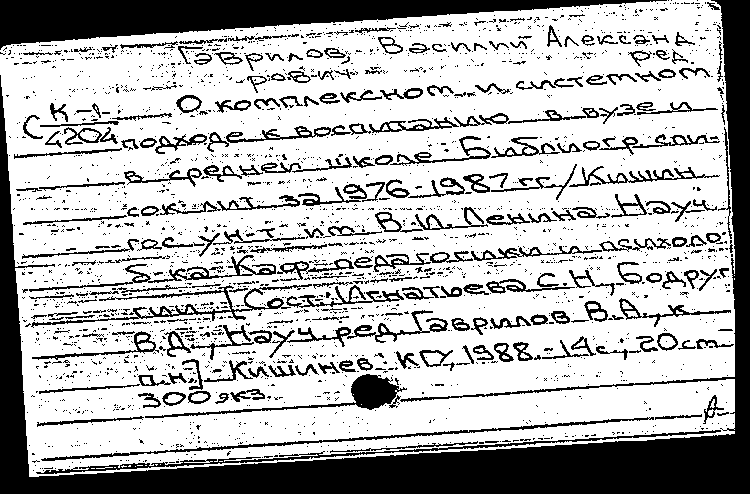 Гаврилов, Василий Александ-
рович ред.
С К-1 О комплексном и системном
4204 подходе к воспитанию в вузе и
в средней школе: Библиогр. спи-
сок лит. за 1976-1987 гг. / Кишин.
гос. ун-т. им. В.И. Ленина. Науч.
б-ка. Каф. педагогики и психоло-
гии; [Сост.: Игнатьева С.Н., Бодруг
В.Д., Науч. ред. Гаврилов В.А., к.
п.н.]. - Кишинев: КГУ, 1988. - 14 с.; 20 см
300 экз.